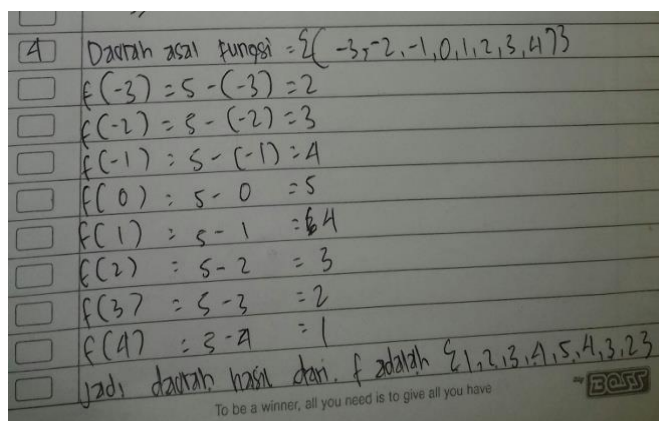 4 Daerah asal fungsi = {( -3, -2, -1, 0, 1, 2, 3, 4)}
f(-3) = 5 - (-3) = 2
f(-2) = 5 - (-2) = 3
f(-1) = 5 - (-1) = 4
f(0) = 5 - 0 = 5
f(1) = 5 - 1 = 4
f(2) = 5 - 2 = 3
f(3) = 5 - 3 = 2
f(4) = 5 - 4 = 1
Jadi daerah hasil dari f adalah {1, 2, 3, 4, 5, 4, 3, 2}
To be a winner, all you need is to give all you have
BOSS